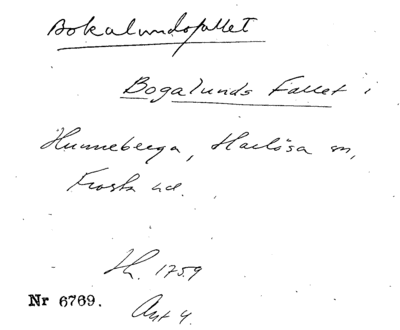 Bokalundsfallet
Bogalunds Fallet i
Hunneberga, Harlösa sn,
Frosta hd.
Lh. 1759
Nr 6769.
Akt 4.